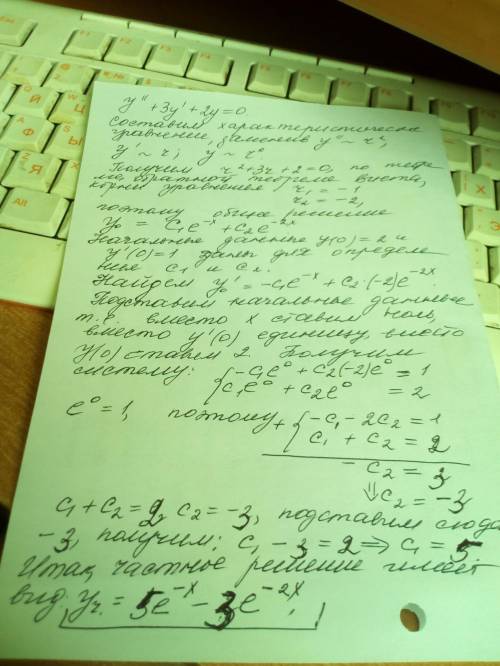 y'' + 3y' + 2y = 0.
Составим характеристическое
уравнение, заменив y'' ~ r²,
y' ~ r; y ~ r⁰.
Получим r² + 3r + 2 = 0, по теоре
ме, обратной теореме Виета,
корни уравнения r₁ = -1
r₂ = -2,
поэтому общее решение
y₀ = c₁e^{-x} + c₂e^{-2x}
Начальные данные y(0) = 2 и
y'(0) = 1 даны для определе
ния c₁ и c₂.
Найдем y₀' = -c₁e^{-x} + c₂·(-2)e^{-2x}.
Подставим начальные данные
т.е вместо x ставим ноль,
вместо y'(0) единицу, вместо
y(0) ставим 2. Получим
систему: { -c₁e⁰ + c₂(-2)e⁰ = 1
c₁e⁰ + c₂e⁰ = 2
e⁰ = 1, поэтому + { -c₁ - 2c₂ = 1
c₁ + c₂ = 2
- c₂ = 3
⇓ c₂ = -3
c₁ + c₂ = 2, c₂ = -3, подставим сюда
-3, получим: c₁ - 3 = 2 ⇒ c₁ = 5
Итак, частное решение имеет
вид: yч. = 5e^{-x} - 3e^{-2x}.